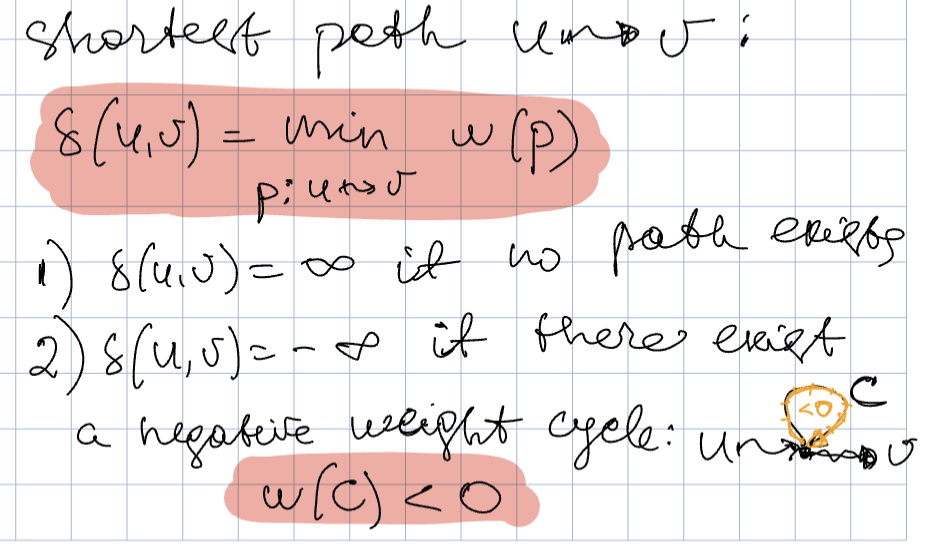 shortest path u ⇝ v :
δ(u,v) = min w(p)
p: u ⇝ v
1) δ(u,v) = ∞ if no path exists
2) δ(u,v) = - ∞ if there exist
<0 C
a negative weight cycle: u ⇝ v
w(C) < 0